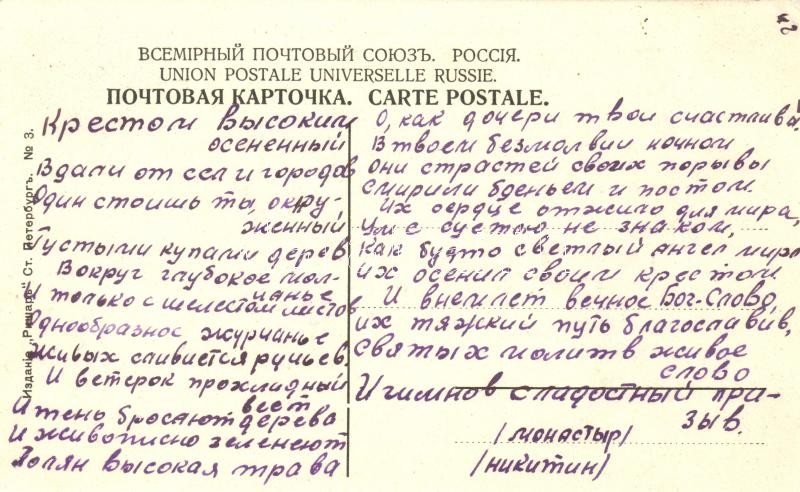 42
ВСЕМІРНЫЙ ПОЧТОВЫЙ СОЮЗЪ. РОССІЯ.
UNION POSTALE UNIVERSELLE RUSSIE.
ПОЧТОВАЯ КАРТОЧКА. CARTE POSTALE.
Крестом высоким
осененный
Вдали от сел и городов
Один стоишь ты, окру-
женный
Густыми купами дерев
Вокруг глубокое мол-
чанье
И только с шелестом листов
Однообразное журчанье
Живых сливается ручьев.
И ветерок прохладный
веет
И тень бросают дерева
И живописно зеленеют
Полян высокая трава
О, как дочери твои счастливы!
В твоем безмолвии ночном
Они страстей своих порывы
Смирили бденьем и постом
Их сердце отжило для мира,
Ум с суетою не знаком,
Как будто светлый ангел мира
Их осенил своим крестом
И внемлет вечное Бог-Слово,
Их тяжкий путь благословив,
Святых молитв живое
слово
И гимнов сладостный при-
зыв.
/монастыр/
/никитин/
Изданіе „Ришаръ“ Ст. Петербургъ. № 3.